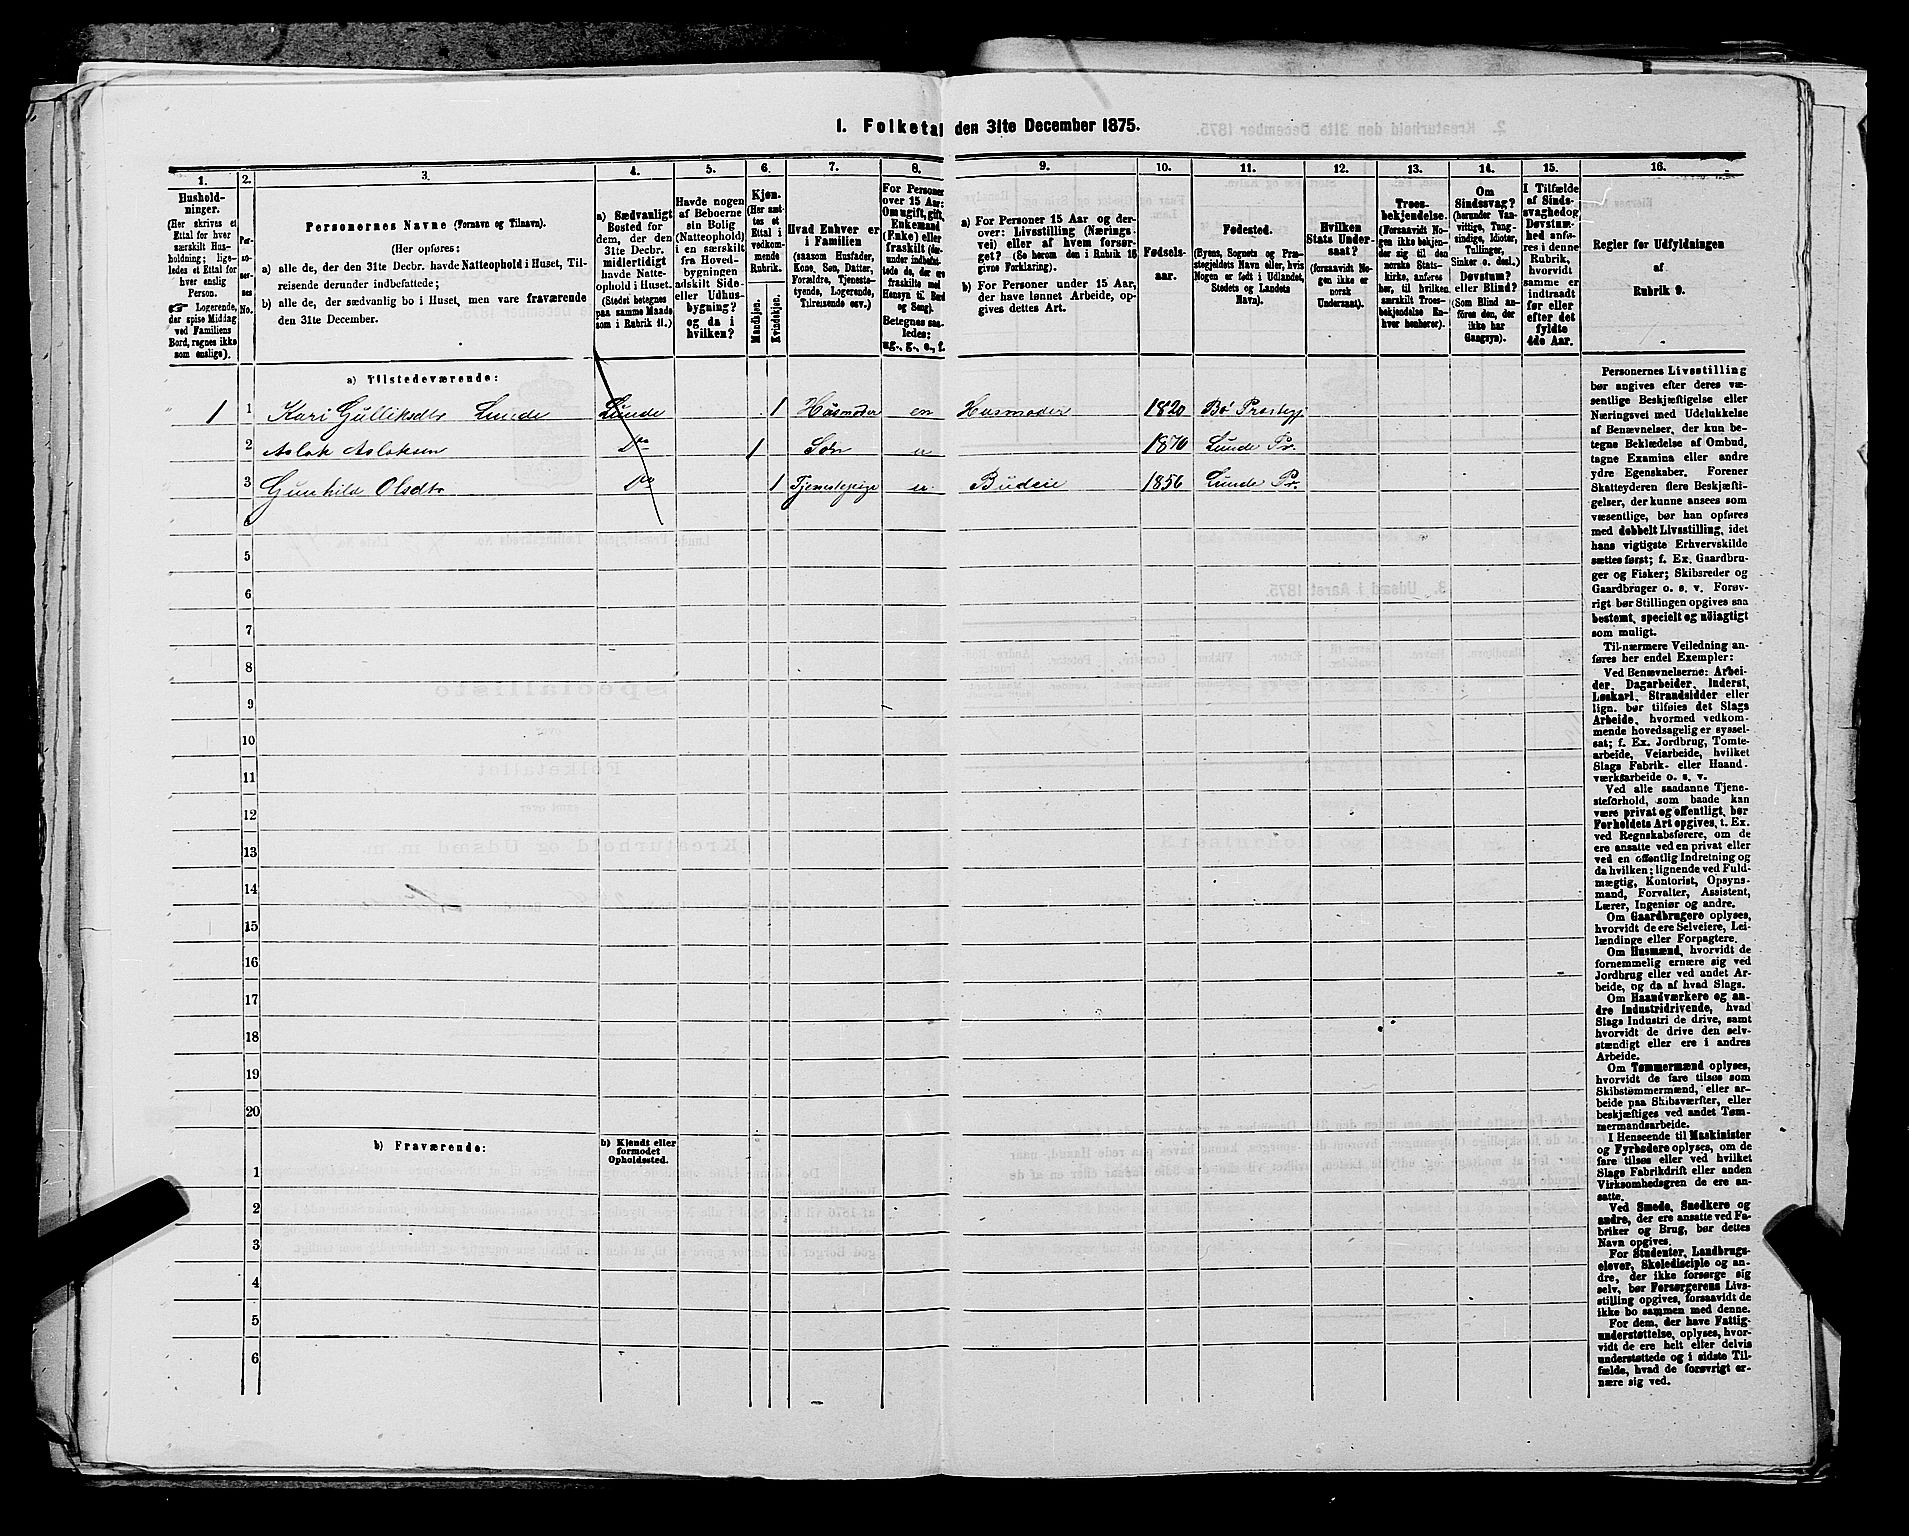 1. Folketal den 31te December 1875.
1.
2.
3.
4.
5.
6.
7.
8.
9.
10.
11.
12.
13.
14.
15.
16.
Hushold-
ninger.
(Her skrives et
Ettal for hver
særskilt Hus-
holdning; lige-
ledes et Ettal for
hver enslig
Person.
☞ Logerende,
der spise Middag
ved Familiens
Bord, regnes ikke
som enslige).
Per-
soner-
nes
No.
Personernes Navne (Fornavn og Tilnavn).
(Her opføres:
a) alle de, der den 31te Decbr. havde Natteophold i Huset, Til-
reisende derunder indbefattede;
b) alle de, der sædvanlig bo i Huset, men vare fraværende
den 31te December.
a) Sædvanligt
Bosted for
dem, der den
31te Decbr.
midlertidigt
havde Natte-
ophold i Huset.
(Stedet betegnes
paa samme Maade
som i Rubrik 11.)
Havde nogen
af Beboerne
sin Bolig
(Natteophold)
i en særskilt
fra Hoved-
bygningen
adskilt Side-
eller Udhus-
bygning?
og da i
hvilken?
Kjøn.
(Her sæt-
tes et
Ettal i
vedkom-
mende
Rubrik.
Mandkjøn.
Kvindekjøn.
Hvad Enhver er
i Familien
(saasom Husfader,
Kone, Søn, Datter,
Forældre, Tjeneste-
tyende, Logerende,
Tilreisende osv.)
For Personer
over 15 Aar:
Om ugift, gift,
Enkemand
(Enke) eller
fraskilt (her-
under indbefat-
tede de, der ere
fraskilte med
Hensyn til Bord
og Seng).
Betegnes saa-
ledes:
ug., g., e., f.
a) For Personer 15 Aar og der-
over: Livsstilling (Nærings-
vei) eller af hvem forsør-
get? (Se herom den i Rubrik 16
givne Forklaring).
b) For Personer under 15 Aar,
der have lønnet Arbeide, op-
gives dettes Art.
Fødsels-
aar.
Fødested.
(Byens, Sognets og Præ-
stegjeldets Navn eller, hvis
Nogen er født i Udlandet,
Stedets og Landets
Navn).
Hvilken
Stats Under-
saat?
(forsaavidt No-
gen ikke er
norsk
Undersaat).
Troes-
bekjendelse.
(Forsaavidt No-
gen ikke bekjen-
der sig til den
norske Stats-
kirke, anføres
her, til hvilken
særskilt Troes-
bekjendelse En-
hver henhører).
Om
Sindssvag?
(herunder Van-
vittige, Tung-
sindige, Idioter,
Tullinger,
Sinker o. desl.)
Døvstum?
eller Blind?
(Som Blind an-
føres den, der
ikke har
Gangsyn).
I Tilfælde
af Sinds-
svaghed og
Døvstum-
hed anfø-
res i denne
Rubrik,
hvorvidt
samme er
indtraadt
før eller
efter det
fyldte
4de Aar.
Regler for Udfyldningen
af
Rubrik 9.
a) Tilstedeværende:
1 1 Kari Gulliksdtr Lunde Lunde 1 Husmoder en Husmoder 1820 Bø Prestegj
2 Aslak Aslaksen Do 1 Søn u 1870 Lunde Pr.
3 Gunhild Olsdtr Do 1 Tjenestepige u Budeie 1856 Lunde Pr.
4
5
6
7
8
9
10
11
12
13
14
15
16
17
18
19
20
b) Fraværende:
b) Kjendt eller
formodet
Opholdssted.
1
2
3
4
5
6
Personernes Livsstilling
bør angives efter deres væ-
sentlige Beskjæftigelse eller
Næringsvei med Udelukkelse
af Benævnelser, der kun be-
tegne Beklædelse af Ombud,
tagne Examina eller andre
ydre Egenskaber. Forener
Skatteyderen flere Beskjæfti-
gelser, der kunne ansees som
væsentlige, bør han opføres
med dobbelt Livsstilling, idet
hans vigtigste Erhvervskilde
sættes først; f. Ex. Gaardbru-
ger og Fisker; Skibsreder og
Gaardbruger o. s. v. Forøv-
rigt bør Stillingen opgives saa
bestemt, specielt og nöiagtigt
som muligt.
Til nærmere Veiledning an-
føres her endel Exempler:
Ved Benævnelserne: Arbei-
der, Dagarbeider, Inderst,
Løskarl, Strandsidder eller
lign. bør tilføies det Slags
Arbeide, hvormed vedkom-
mende hovedsagelig er syssel-
sat; f. Ex. Jordbrug, Tomte-
arbeide, Veiarbeide, hvilket
Slags Fabrik- eller Haand-
værksarbeide o. s. v.
Ved alle saadanne Tjene-
steforhold, som baade kan
være privat og offentligt, bør
Forholdets Art opgives, t. Ex.
ved Regnskabsførere, om de
ere ansatte ved en privat eller
ved en offentlig Indretning og
da hvilken; lignende ved Fuld-
mægtig, Kontorist, Opsyns-
mand, Forvalter, Assistent,
Lærer, Ingeniør og andre.
Om Gaardbrugere oplyses,
hvorvidt de ere Selveiere, Lei-
lændinge eller Forpagtere.
Om Husmænd, hvorvidt de
fornemmelig ernære sig ved
Jordbrug eller ved andet Ar-
beide, og da af hvad Slags.
Om Haandværkere og an-
dre Industridrivende, hvad
Slags Industri de drive, samt
hvorvidt de drive den selv-
stændigt eller ere i andres
Arbeide.
Om Tømmermænd oplyses,
hvorvidt de fare tilsøs som
Skibstømmermænd, eller ar-
beide paa Skibsværfter, eller
beskjæftiges ved andet Tøm-
mermandsarbeide.
I Henseende til Maskinister
og Fyrbødere oplyses, om de
fare tilsøs eller ved hvilket
Slags Fabrikdrift eller anden
Virksomhedsgren de ere an-
satte.
Ved Smede, Snedkere og
andre, der ere ansatte ved Fa-
briker og Brug, bør dettes
Navn opgives.
For Studenter, Landbrugs-
elever, Skoledisciple og an-
dre, der ikke forsørge sig
selv, bør Forsørgerens Livs-
stilling opgives, forsaavidt de
ikke bo sammen med denne.
For dem, der have Fattig-
understøttelse, oplyses, hvor-
vidt de ere helt eller delvis
understøttede og i sidste Til-
fælde, hvad de forøvrigt er-
nære sig ved.